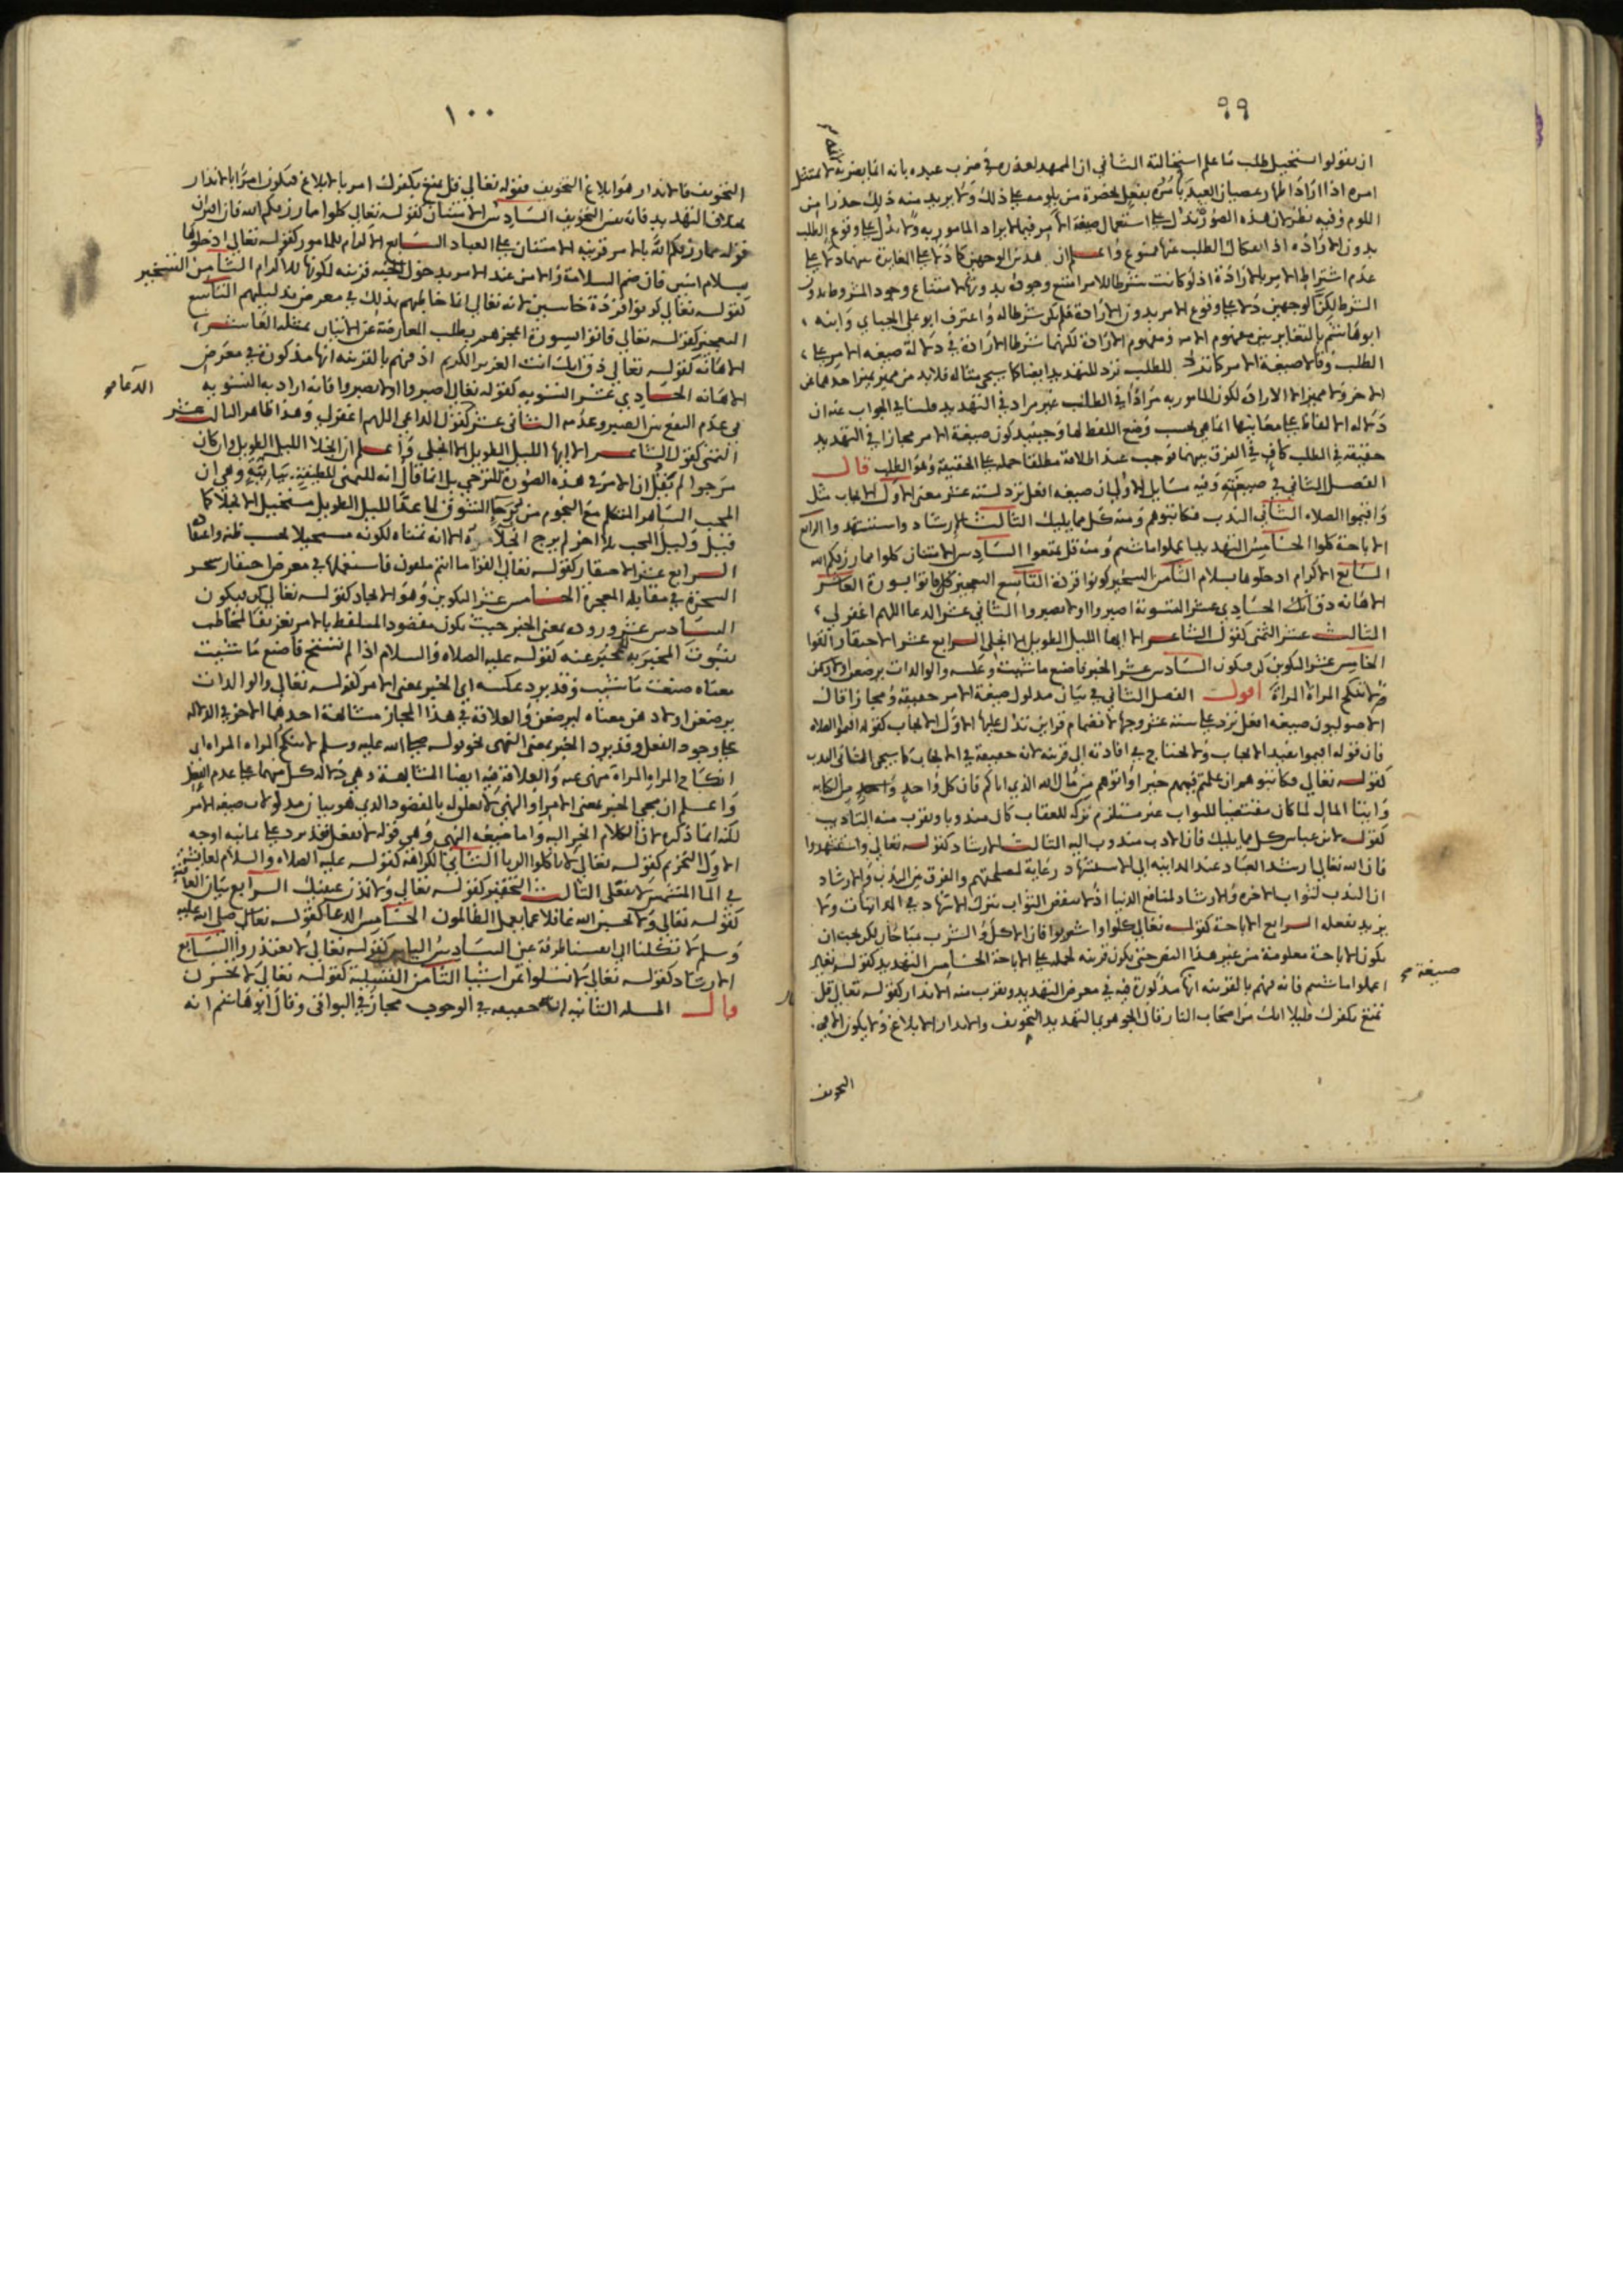 ٩٩
ان يقولوا يستحيل طلب ما علم استحالته الثاني ان الممهد لعذره في ضرب عبده بانه انما يضربه لانه لا يمتثل
امره اذا اراد اظهار عصيان العبد يامره بفعل بحضرة من يلومه على ذلك ولا يريد منه ذلك حذرا من
اللوم وفيه نظر لان هذه الصور تدل على استعمال صيغة الامر فيما لا يراد المامور به ولا تدل على وقوع الطلب
بدون الارادة اذ انفكاك الطلب عنها ممنوع واعلم ان هذين الوجهين كما دلا على المغايرة بينهما دلا على
عدم اشتراط الامر بالارادة اذ لو كانت شرطا للامر امتنع وجوده بدونها لامتناع وجود المشروط بدون
الشرط لكن الوجهين دلا على وقوع الامر بدون الارادة فلم تكن شرطا له واعترف ابو علي الجبائي وابنه
ابو هاشم بالتغاير بين مفهوم الامر ومفهوم الارادة لكنهما شرطا الارادة في دلالة صيغة الامر على
الطلب وقالا صيغة الامر كما ترد للطلب ترد للتهديد ايضا كما سيجي مثاله فلا بد من مميز يميز احدهما عن
الاخر ولا مميز الا الارادة لكون المامور به مرادا في الطلب غير مراد في التهديد قلنا في الجواب عنه ان
دلالة الالفاظ على معانيها انما هي بحسب وضع اللفظ لها وحينئذ كون صيغة الامر مجازا في التهديد
حقيقة في الطلب كاف في الفرق بينهما فوجب عند اطلاقه مطلقا حمله على الحقيقة وهو الطلب قال
الفصل الثاني في صيغته وفيه مسايل الاولى ان صيغة افعل ترد لستة عشر معنى الاول الايجاب مثل
واقيموا الصلاة الثاني الندب فكاتبوهم ومنه كل مما يليك الثالث الارشاد واستشهدوا الرابع
الاباحة كلوا الخامس التهديد اعملوا ما شئتم ومنه قل تمتعوا السادس الامتنان كلوا مما رزقكم الله
السابع الاكرام ادخلوها بسلام الثامن التسخير كونوا قردة التاسع التعجيز فاتوا بسورة العاشر
الاهانة ذق انك الحادي عشر التسوية اصبروا او لا تصبروا الثاني عشر الدعا اللهم اغفر لي
الثالث عشر التمني كقول الشاعر الا ايها الليل الطويل الا انجلي الرابع عشر الاحتقار القوا
الخامس عشر التكوين كن فيكون السادس عشر الخبر فاصنع ما شيت وعكسه والوالدات يرضعن اولادهن
ولا تنكح المراة المراة اقول الفصل الثاني في بيان مدلول صيغة الامر حقيقة ومجازا قال
الاصوليون صيغة افعل ترد على ستة عشر وجها لانضمام قراين تدل عليها الاول الايجاب كقوله اقيموا الصلاة
فان قوله اقيموا يفيد الايجاب ولا يحتاج في افادته الى قرينة لانه حقيقة في الايجاب كما سيجي الثاني الندب
كقوله تعالى فكاتبوهم ان علمتم فيهم خيرا واتوهم من مال الله الذي اتاكم فان كل واحد من الكتابة
وايتا المال لما كان مقتضيا للثواب غير مستلزم تركه للعقاب كان مندوبا ويقرب منه التاديب
كقوله لابن عباس كل مما يليك فان الادب مندوب اليه الثالث الارشاد كقوله تعالى واستشهدوا
فان الله تعالى ارشد العباد عند المداينة الى الاستشهاد رعاية لمصلحتهم والفرق بين الندب والارشاد
ان الندب لثواب الاخرة والارشاد لمنافع الدنيا اذ لا ينقص الثواب بترك الاشهاد في المداينات ولا
يزيد بفعله الرابع الاباحة كقوله تعالى كلوا واشربوا فان الاكل والشرب مباحان لكن يجب ان
تكون الاباحة معلومة من غير هذا النص حتى يكون قرينة لحمله على الاباحة الخامس التهديد كقوله تعالى
اعملوا ما شئتم فانه فهم بالقرينة انها مذكورة فيه في معرض التهديد ويقرب منه الانذار كقوله تعالى قل
تمتع بكفرك قليلا انك من اصحاب النار قال الجوهري التهديد التخويف والانذار الابلاغ ولا يكون الا في
صيغة صح
التخويف
١٠٠
التخويف فالانذار هو ابلاغ التخويف فقوله تعالى قل تمتع بكفرك امر بالابلاغ فيكون امرا بالانذار
بخلاف التهديد فانه نفس التخويف السادس الامتنان كقوله تعالى كلوا مما رزقكم الله فان اقتران
قوله مما رزقكم الله بالامر قرينة الامتنان على العباد السابع الاكرام بالمامور كقوله تعالى ادخلوها
بسلام امنين فان ضم السلامة والامن عند الامر بدخول الجنة قرينة لكونها للاكرام الثامن التسخير
كقوله تعالى كونوا قردة خاسئين لانه تعالى انما خاطبهم بذلك في معرض تذليلهم التاسع
التعجيز كقوله تعالى فاتوا بسورة اعجزهم بطلب المعارضة عن الاتيان بمثله العاشر
الاهانة كقوله تعالى ذق انك انت العزيز الكريم اذ فهم بالقرينة انها مذكورة في معرض
الاهانة الحادي عشر التسوية كقوله تعالى اصبروا او لا تصبروا فانه اراد به التسوية
في عدم النفع بين الصبر وعدمه الثاني عشر كقول الداعي اللهم اغفر لي وهذا ظاهر الثالث عشر
الدعا صح
التمني كقول الشاعر الا ايها الليل الطويل الا انجلي واعلم ان انجلا الليل الطويل وان كان
مرجوا لم يقل ان الامر في هذه الصورة للترجي بل انما قال انه للتمني للطيفة بيانية وهي ان
المحب الساهر المتكلم مع النجوم من برحا الشوق لما عد الليل الطويل مستحيل الانجلا كما
قيل وليل المحب بلا اخر لم يرج انجلاه الا انه تمناه لكونه مستحيلا بحسب ظنه واعتقا
الرابع عشر الاحتقار كقوله تعالى القوا ما انتم ملقون فاستعملها في معرض احتقار سحر
السحرة في مقابلة المعجزة الخامس عشر التكوين وهو الايجاد كقوله تعالى كن فيكون
السادس عشر وروده بمعنى الخبر حيث يكون مقصود المتلفظ بالامر تعريف المخاطب
بثبوت المخبر به للمخبر عنه كقوله عليه الصلاة والسلام اذا لم تستح فاصنع ما شئت
معناه صنعت ما شئت وقد يرد عكسه اي الخبر بمعنى الامر كقوله تعالى والوالدات
يرضعن اولادهن معناه ليرضعن والعلاقة في هذا المجاز مشابهة احدهما الاخر في الدلالة
على وجود الفعل وقد يرد الخبر بمعنى النهي نحو قوله صلى الله عليه وسلم لا تنكح المراة المراة اي
انكاح المراة المراة منهي عنه والعلاقة فيه ايضا المشابهة وهي دلالة كل منهما على عدم الفعل
واعلم ان مجي الخبر بمعنى الامر او النهي لا تعلق له بالمقصود الذي هو بيان مدلولات صيغة الامر
لكنه انما ذكره لان الكلام انجر اليه واما صيغة النهي وهي قوله لا تفعل فقد ترد على ثمانية اوجه
الاول التحريم كقوله تعالى لا تاكلوا الربا الثاني الكراهة كقوله عليه الصلاة والسلام لعايشة
في الما المشمس لا تفعلي الثالث التحقير كقوله تعالى ولا تمدن عينيك الرابع بيان العاقبة
كقوله تعالى ولا تحسبن الله غافلا عما يعمل الظالمون الخامس الدعا كقوله صلى الله عليه
وسلم لا تكلنا الى انفسنا طرفة عين السادس الياس كقوله تعالى لا تعتذروا السابع
الارشاد كقوله تعالى لا تسئلوا عن اشيا الثامن التسلية كقوله تعالى لا تحزن
قال المسئلة الثانية انه حقيقة في الوجوب مجاز في البواقي وقال ابو هاشم انه